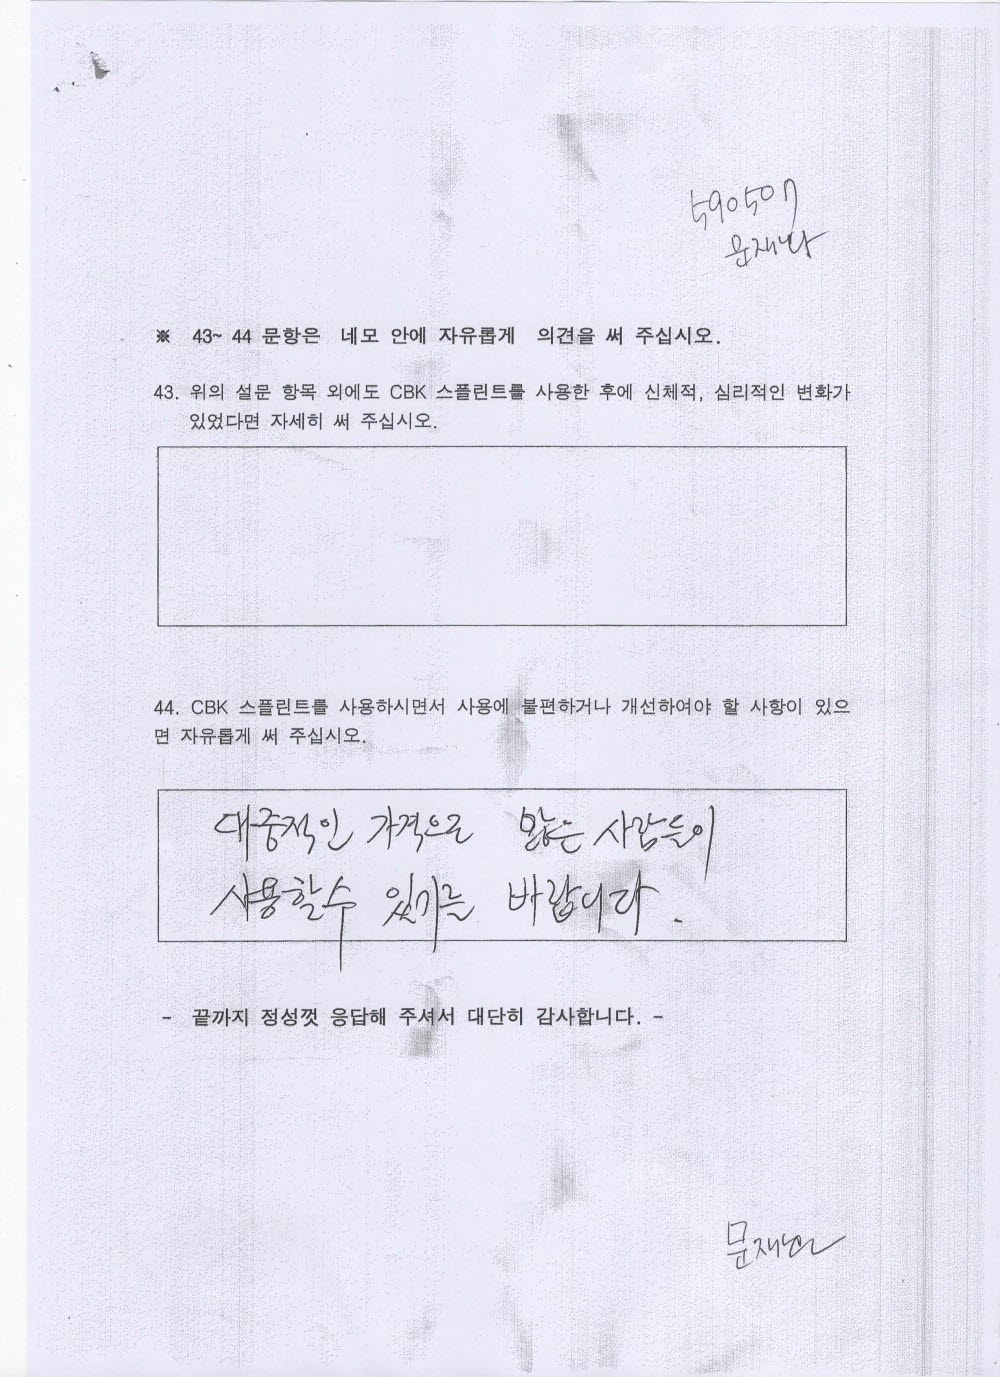 590507
※ 43~ 44 문항은 네모 안에 자유롭게 의견을 써 주십시오.
43. 위의 설문 항목 외에도 CBK 스플린트를 사용한 후에 신체적, 심리적인 변화가
있었다면 자세히 써 주십시오.
44. CBK 스플린트를 사용하시면서 사용에 불편하거나 개선하여야 할 사항이 있으
면 자유롭게 써 주십시오.
대중적인 가격으로 많은 사람들이
사용할수 있기를 바랍니다.
- 끝까지 정성껏 응답해 주셔서 대단히 감사합니다. -